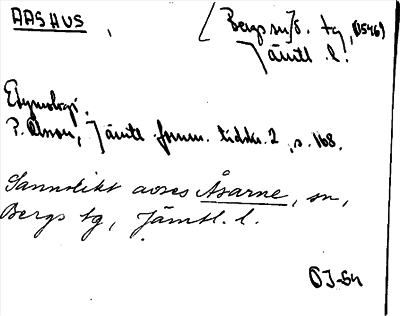 AASHUS, [Bergs sn]s. tg, (1546)
Jämtl. l.
Etymologi.
P. Olsson, Jämtl. fornm. tidskr. 2, s. 168.
Sannolikt avses Åsarne, sn,
Bergs tg, Jämtl. l.
OJ-64